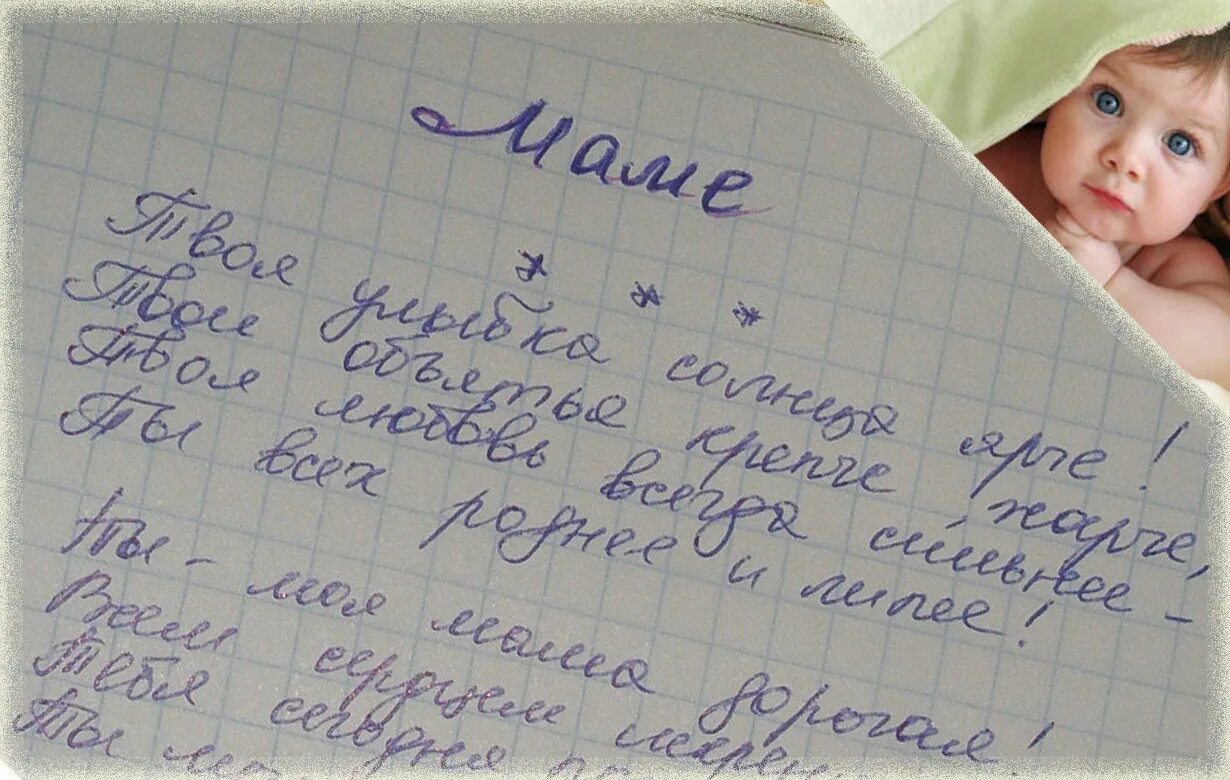 Маме
* * *
Твоя улыбка солнца ярче!
Твои объятья крепче жарче,
Твоя любовь всегда сильнее –
Ты всех роднее и милее!
Ты – моя мама дорогая!
Всем сердцем
Тебя сегодня
Ты